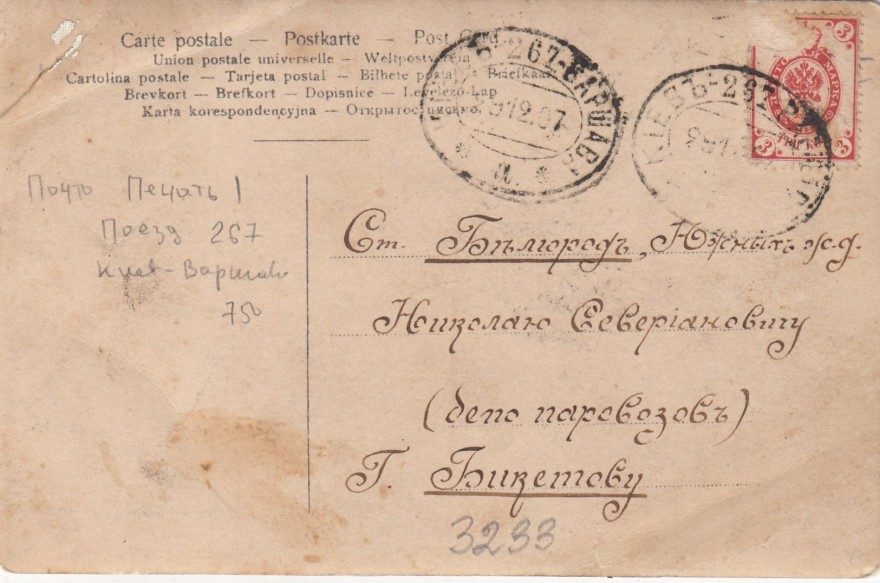 Carte postale — Postkarte — Post Card
Union postale universelle — Weltpostverein
Cartolina postale — Tarjeta postal — Bilhete postal — Briefkaart
Brevkort — Brefkort — Dopisnice — Levelező-Lap
Karta korespondencyjna — Открытое письмо
КІЕВЪ-267-ВАРШАВА
912.07
КІЕВЪ-267
3
3
МАРКА
Почто Печать !
Поезд 267
Киев-Варшава
750
Ст. Бѣлгородъ, Южныхъ ж.д.
Николаю Северіановичу
(депо паровозовъ)
Г. Бикетову
3233